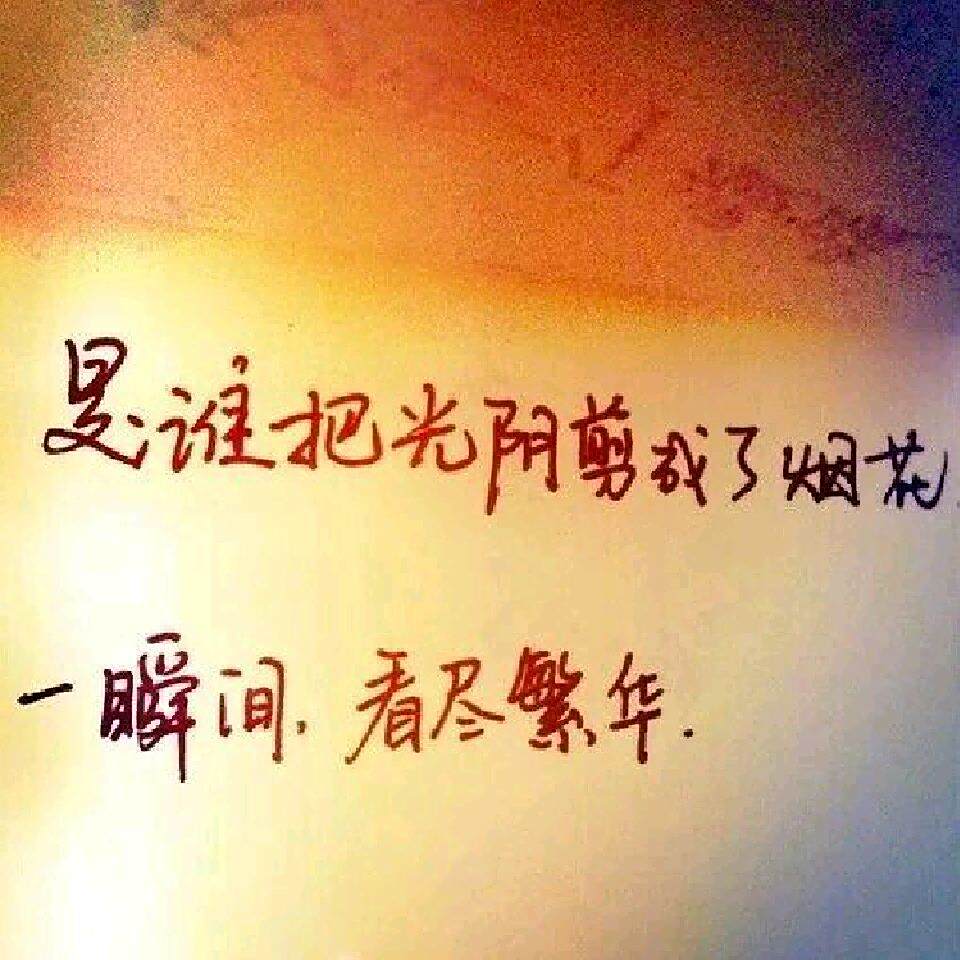 是谁把光阴剪成了烟花.
一瞬间,看尽繁华.